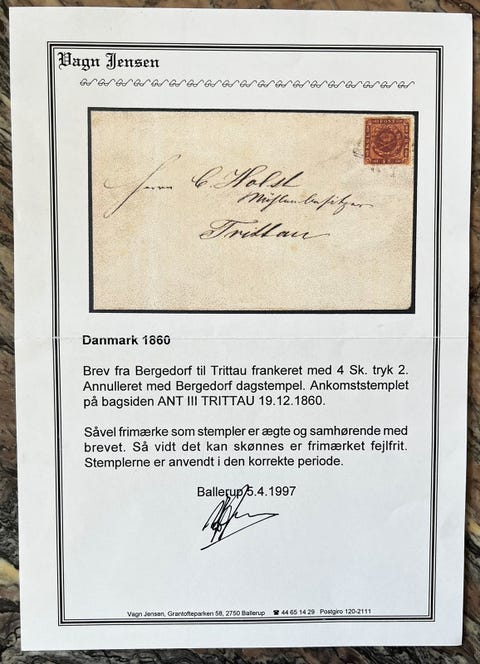 Vagn Jensen
POST
Herrn C. Holst
Mühlenbesitzer
Trittau
Danmark 1860
Brev fra Bergedorf til Trittau frankeret med 4 Sk. tryk 2.
Annulleret med Bergedorf dagstempel. Ankomststemplet
på bagsiden ANT III TRITTAU 19.12.1860.
Såvel frimærke som stempler er ægte og samhørende med
brevet. Så vidt det kan skønnes er frimærket fejlfrit.
Stemplerne er anvendt i den korrekte periode.
Ballerup 5.4.1997
Vagn Jensen, Grantofteparken 58, 2750 Ballerup ☎ 44 65 14 29 Postgiro 120-2111